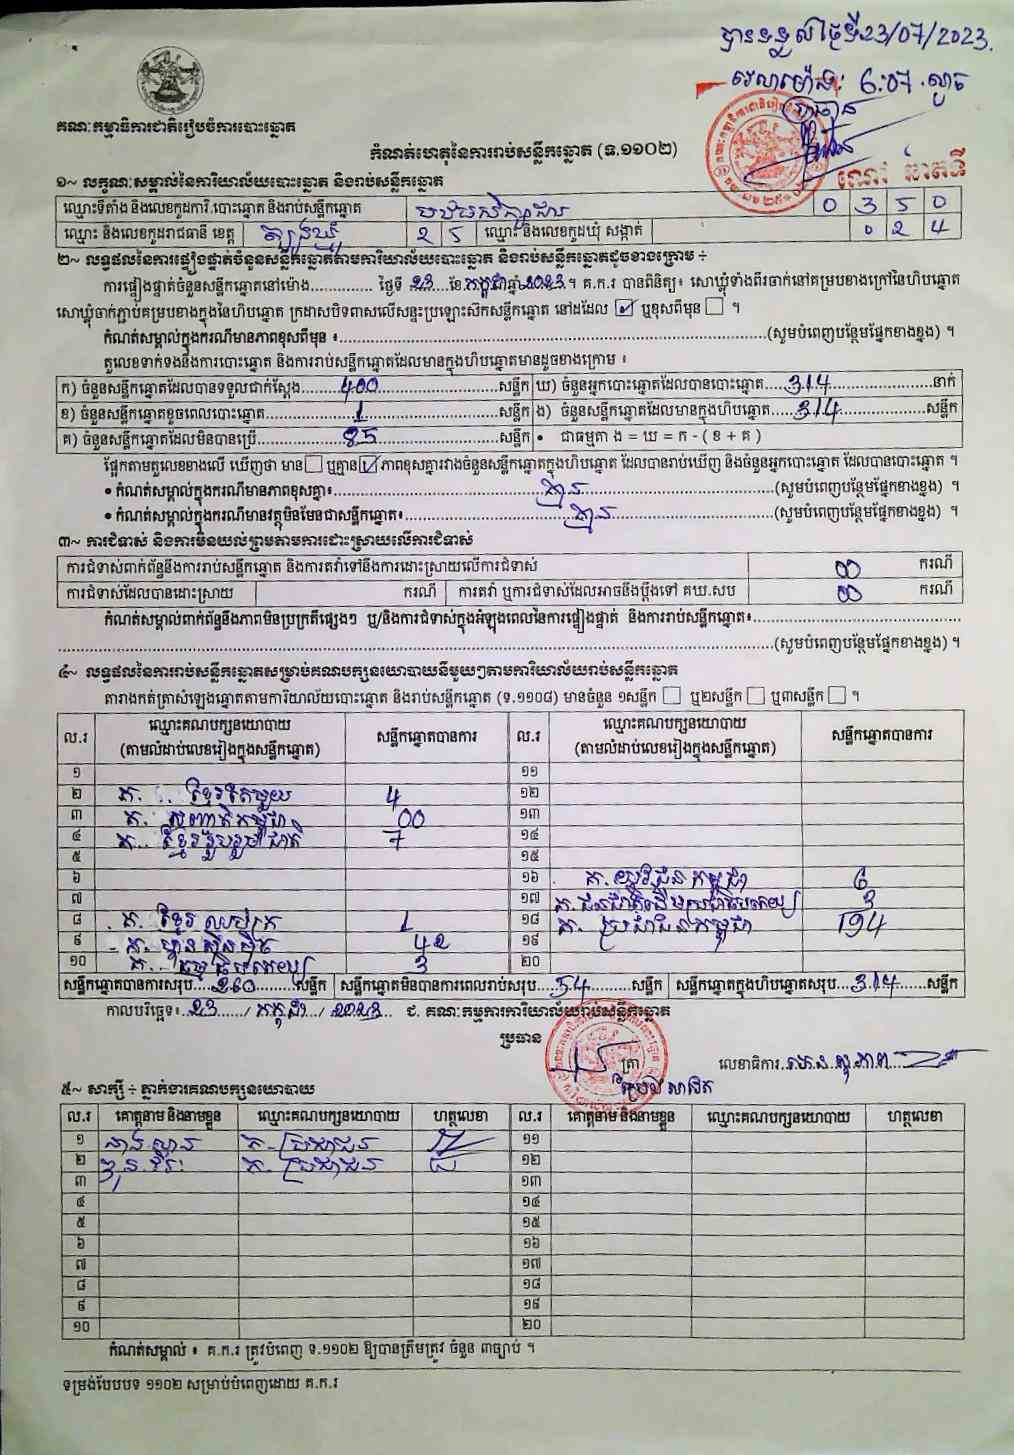 បានទទួលថ្ងៃទី23/07/2023.
វេលាម៉ោង: 6:07 ល្ងាច
ប្រធាន
គណៈកម្មាធិការជាតិរៀបចំការបោះឆ្នោត
កំណត់ហេតុនៃការរាប់សន្លឹកឆ្នោត (ទ.១១០២)
១~ លក្ខណៈសម្គាល់នៃការិយាល័យបោះឆ្នោត និងរាប់សន្លឹកឆ្នោត
ឈ្មោះទីតាំង និងលេខកូដការិ.បោះឆ្នោត និងរាប់សន្លឹកឆ្នោត 0 3 5 0
ឈ្មោះ និងលេខកូដរាជធានី ខេត្ត ត្បូងឃ្មុំ 2 5 ឈ្មោះ និងលេខកូដឃុំ សង្កាត់ 0 2 4
២~ លទ្ធផលនៃការផ្ទៀងផ្ទាត់ចំនួនសន្លឹកឆ្នោតតាមការិយាល័យបោះឆ្នោត និងរាប់សន្លឹកឆ្នោតដូចខាងក្រោម ÷
ការផ្ទៀងផ្ទាត់ចំនួនសន្លឹកឆ្នោតនៅម៉ោង.............. ថ្ងៃទី 23 ......ខែ កក្កដា ឆ្នាំ 2023 ។ គ.ក.រ បានពិនិត្យ៖ សោឃ្លុំទាំងពីរចាក់នៅគម្របខាងក្រៅនៃហិបឆ្នោត
សោឃ្លុំចាក់ភ្ជាប់គម្របខាងក្នុងនៃហិបឆ្នោត ក្រដាសបិទពាសលើសន្ទះប្រឡោះស៊កសន្លឹកឆ្នោត នៅដដែល ☑ ឬខុសពីមុន ☐ ។
កំណត់សម្គាល់ក្នុងករណីមានភាពខុសពីមុន ៖..............................(សូមបំពេញបន្ថែមផ្នែកខាងខ្នង) ។
តួលេខទាក់ទងនឹងការបោះឆ្នោត និងការរាប់សន្លឹកឆ្នោតដែលមានក្នុងហិបឆ្នោតមានដូចខាងក្រោម ៖
ក) ចំនួនសន្លឹកឆ្នោតដែលបានទទួលជាក់ស្ដែង....... 400 .......សន្លឹក ឃ) ចំនួនអ្នកបោះឆ្នោតដែលបានបោះឆ្នោត.... 314 .......នាក់
ខ) ចំនួនសន្លឹកឆ្នោតខូចពេលបោះឆ្នោត....... 1 .......សន្លឹក ង) ចំនួនសន្លឹកឆ្នោតដែលមានក្នុងហិបឆ្នោត.... 314 .......សន្លឹក
គ) ចំនួនសន្លឹកឆ្នោតដែលមិនបានប្រើ....... 85 .......សន្លឹក • ជាធម្មតា ង = ឃ = ក - ( ខ + គ )
ផ្អែកតាមតួលេខខាងលើ ឃើញថា មាន ☐ ឬគ្មាន ☑ ភាពខុសគ្នារវាងចំនួនសន្លឹកឆ្នោតក្នុងហិបឆ្នោត ដែលបានរាប់ឃើញ និងចំនួនអ្នកបោះឆ្នោត ដែលបានបោះឆ្នោត ។
• កំណត់សម្គាល់ក្នុងករណីមានភាពខុសគ្នា៖....... គ្មាន .......(សូមបំពេញបន្ថែមផ្នែកខាងខ្នង) ។
• កំណត់សម្គាល់ក្នុងករណីមានវត្ថុមិនមែនជាសន្លឹកឆ្នោត៖....... គ្មាន .......(សូមបំពេញបន្ថែមផ្នែកខាងខ្នង) ។
៣~ ការជំទាស់ និងការមិនយល់ព្រមតាមការដោះស្រាយលើការជំទាស់
ការជំទាស់ពាក់ព័ន្ធនឹងការរាប់សន្លឹកឆ្នោត និងការតវ៉ាទៅនឹងការដោះស្រាយលើការជំទាស់ 00 ករណី
ការជំទាស់ដែលបានដោះស្រាយ ករណី ការតវ៉ា ឬការជំទាស់ដែលអាចនឹងប្ដឹងទៅ គឃ.សប 00 ករណី
កំណត់សម្គាល់ពាក់ព័ន្ធនឹងភាពមិនប្រក្រតីផ្សេងៗ ឬ/និងការជំទាស់ក្នុងអំឡុងពេលនៃការផ្ទៀងផ្ទាត់ និងការរាប់សន្លឹកឆ្នោត៖..............
..............................(សូមបំពេញបន្ថែមផ្នែកខាងខ្នង) ។
៤~ លទ្ធផលនៃការរាប់សន្លឹកឆ្នោតសម្រាប់គណបក្សនយោបាយនីមួយៗតាមការិយាល័យរាប់សន្លឹកឆ្នោត
តារាងកត់ត្រាសំឡេងឆ្នោតតាមការិយាល័យបោះឆ្នោត និងរាប់សន្លឹកឆ្នោត (ទ.១១០៨) មានចំនួន ១សន្លឹក ☐ ឬ២សន្លឹក ☐ ឬ៣សន្លឹក ☐ ។
ល.រ ឈ្មោះគណបក្សនយោបាយ (តាមលំដាប់លេខរៀងក្នុងសន្លឹកឆ្នោត) សន្លឹកឆ្នោតបានការ ល.រ ឈ្មោះគណបក្សនយោបាយ (តាមលំដាប់លេខរៀងក្នុងសន្លឹកឆ្នោត) សន្លឹកឆ្នោតបានការ
១ ១១
២ គ. ខ្មែរតែមួយ 4 ១២
៣ គ. សញ្ជាតិកម្ពុជា 00 ១៣
៤ គ. ខ្មែររួបរួមជាតិ 7 ១៤
៥ ១៥
៦ ១៦ គ. យុវជនកម្ពុជា 6
៧ ១៧ គ. ជនជាតិដើមប្រជាធិបតេយ្យ 3
៨ គ. ខ្មែរឈប់ក្រ 1 ១៨ គ. ប្រជាជនកម្ពុជា 194
៩ គ. ហ្វ៊ុនស៊ិនប៉ិច 42 ១៩
១០ គ. ធម្មាធិបតេយ្យ 3 ២០
សន្លឹកឆ្នោតបានការសរុប.... 260 .......សន្លឹក សន្លឹកឆ្នោតមិនបានការពេលរាប់សរុប.... 54 .......សន្លឹក សន្លឹកឆ្នោតក្នុងហិបឆ្នោតសរុប.... 314 .......សន្លឹក
កាលបរិច្ឆេទ៖ 23 / កក្កដា / 2023 ជ. គណៈកម្មការការិយាល័យរាប់សន្លឹកឆ្នោត
ប្រធាន
ត្រា លេខាធិការ
៥~ សាក្សី ÷ ភ្នាក់ងារគណបក្សនយោបាយ
ល.រ គោត្តនាម និងនាមខ្លួន ឈ្មោះគណបក្សនយោបាយ ហត្ថលេខា ល.រ គោត្តនាម និងនាមខ្លួន ឈ្មោះគណបក្សនយោបាយ ហត្ថលេខា
១ គ. ប្រជាជន ១១
២ គ. ប្រជាជន ១២
៣ ១៣
៤ ១៤
៥ ១៥
៦ ១៦
៧ ១៧
៨ ១៨
៩ ១៩
១០ ២០
កំណត់សម្គាល់ ៖ គ.ក.រ ត្រូវបំពេញ ទ.១១០២ ឱ្យបានត្រឹមត្រូវ ចំនួន ៣ច្បាប់ ។
ទម្រង់បែបបទ ១១០២ សម្រាប់បំពេញដោយ គ.ក.រ